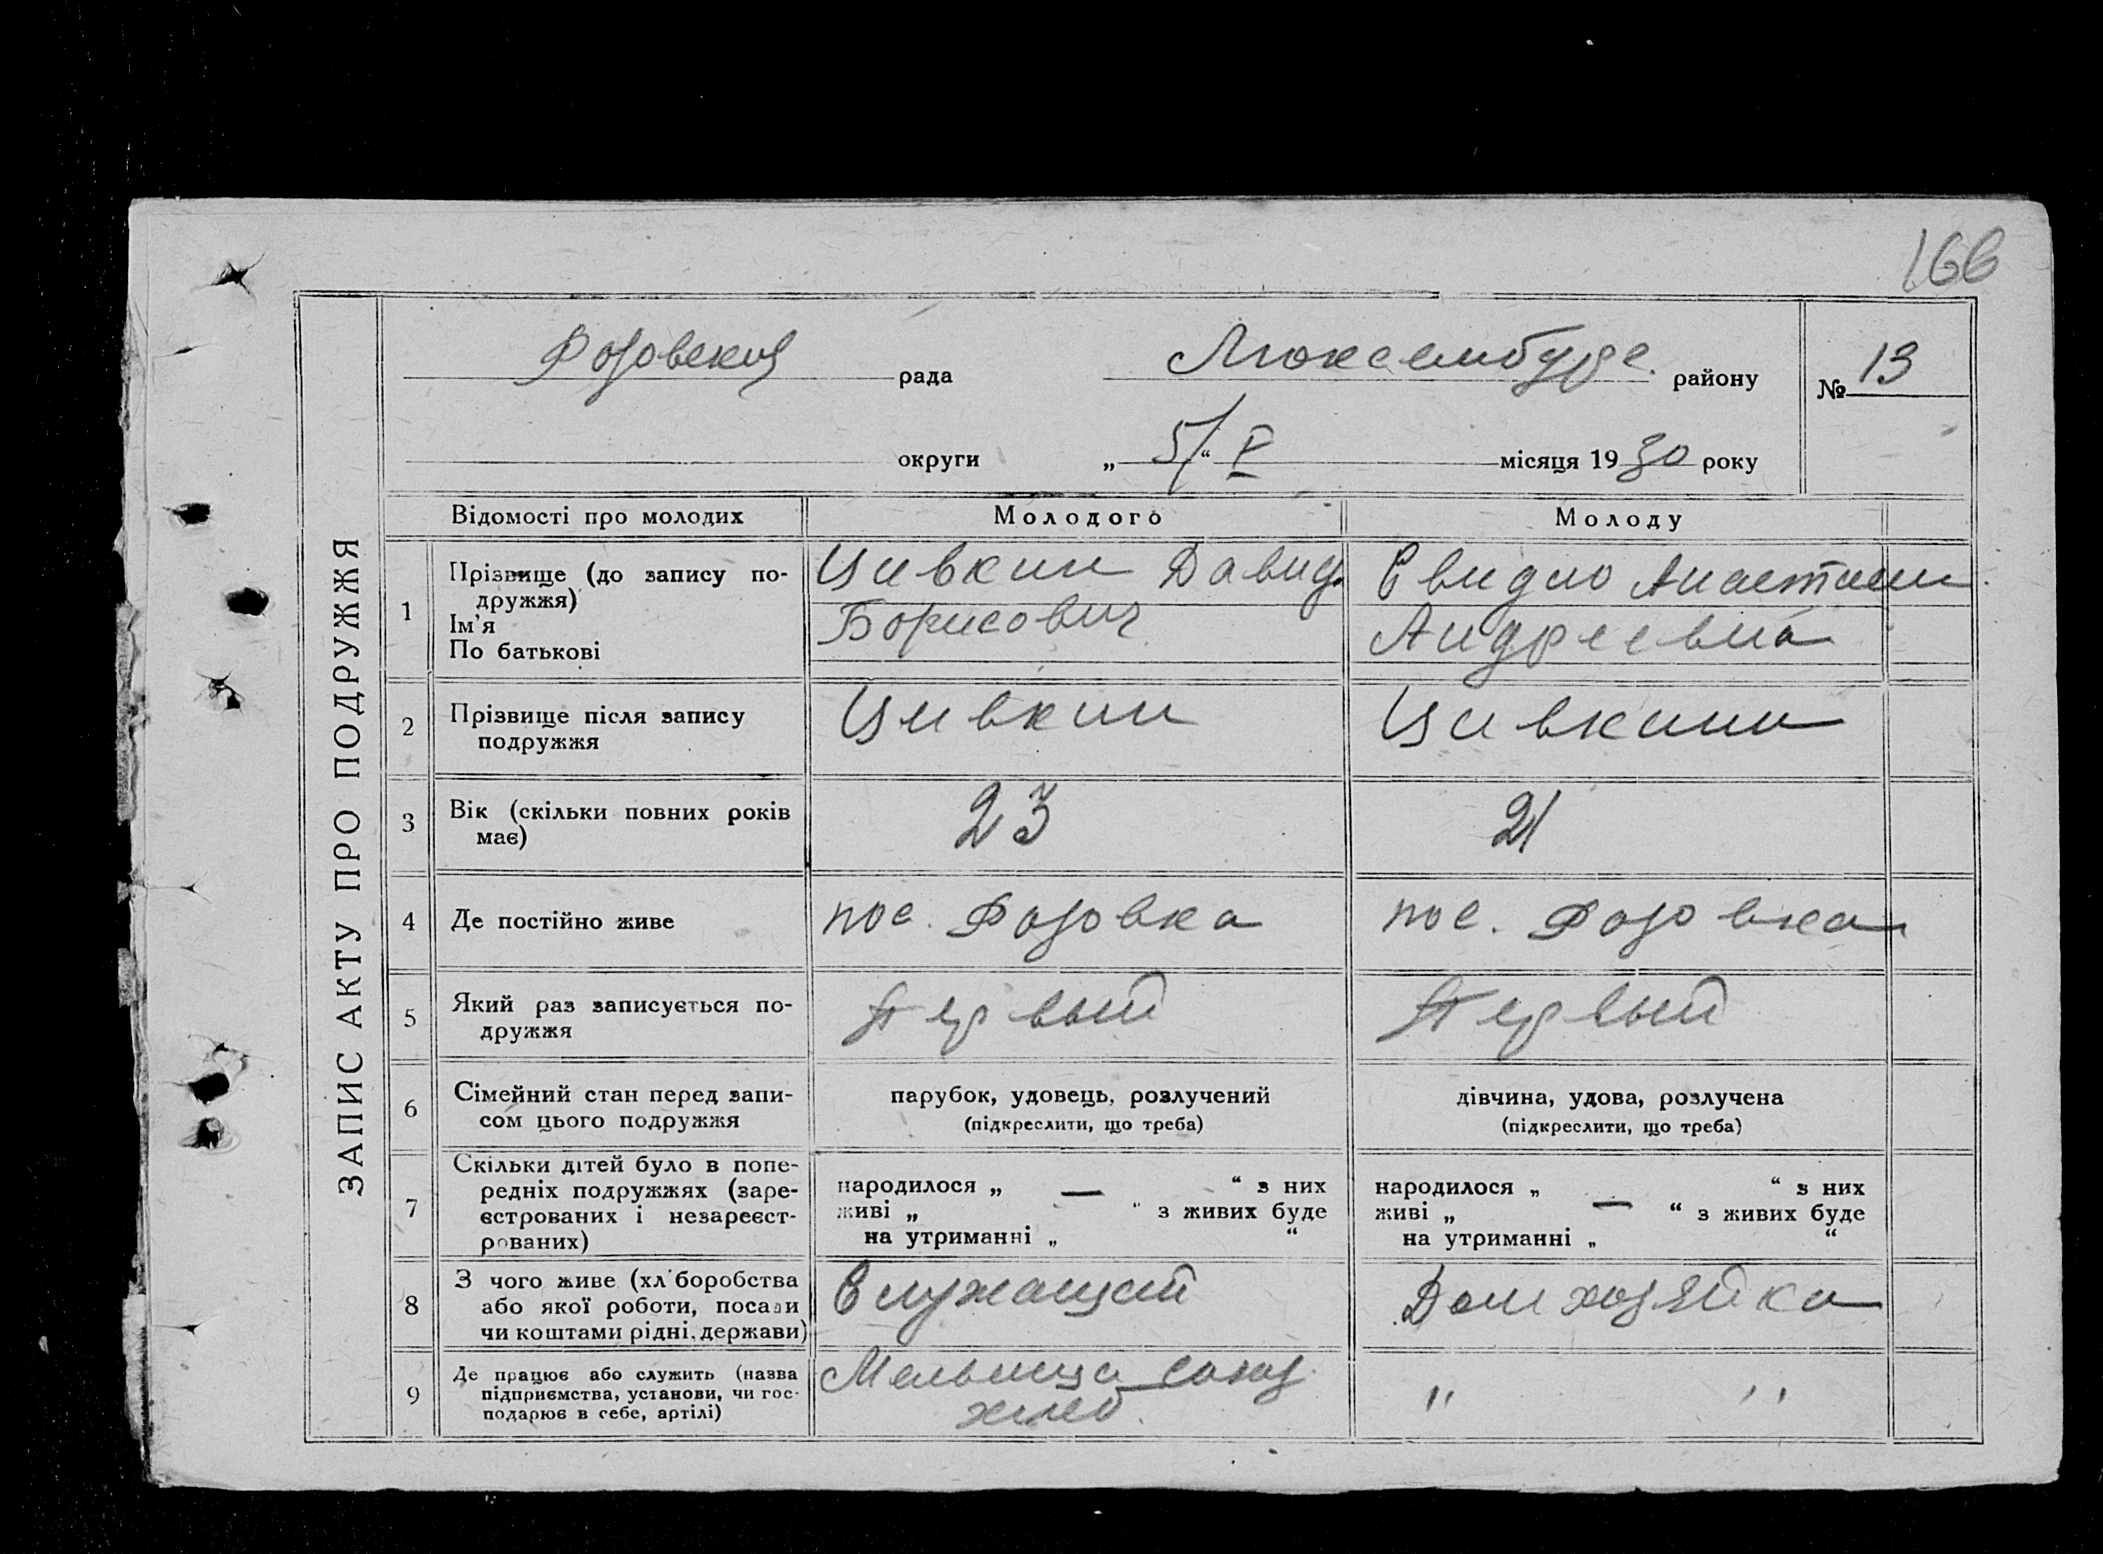 166
ЗАПИС АКТУ ПРО ПОДРУЖЖЯ
Розовский рада Люксембургс. району № 13
округи „5/“ V місяця 1930 року
Відомості про молодих Молодого Молоду
1 Прізвище (до запису по-
дружжя)
Ім'я
По батькові
Цивкин Давид
Борисович
Свидло Анастасии
Андреевна
2 Прізвище після запису
подружжя
Цивкин
Цивкини
3 Вік (скільки повних років
має)
23
21
4 Де постійно живе
пос. Розовка
пос. Розовка
5 Який раз записується по-
дружжя
Первый
Первый
6 Сімейний стан перед запи-
сом цього подружжя
парубок, удовець, розлучений
(підкреслити, що треба)
дівчина, удова, розлучена
(підкреслити, що треба)
7 Скільки дітей було в попе-
редніх подружжях (заре-
єстрованих і незареєст-
рованих)
народилося „ — “ з них
живі „ “ з живих буде
на утриманні „ “
народилося „ — “ з них
живі „ “ з живих буде
на утриманні „ “
8 З чого живе (хліборобства
або якої роботи, посади
чи коштами рідні, держави)
Служащий
Домхозяйка
9 Де працює або служить (назва
підприємства, установи, чи гос-
подарює в себе, артілі)
Мельница союз
хлеб.
" "